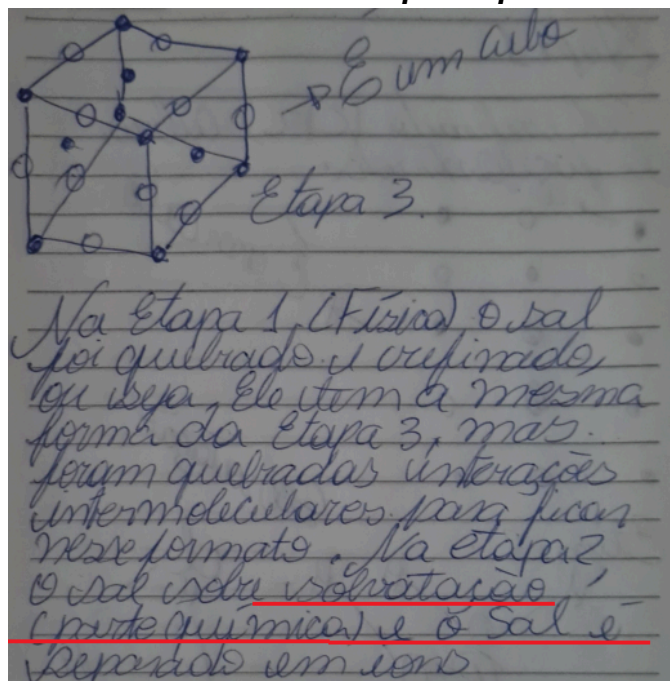 → É um cubo
Etapa 3.
Na Etapa 1, (Física) o sal
foi quebrado e refinado,
ou seja, Ele tem a mesma
forma da Etapa 3, mas
foram quebradas interações
intermoleculares para ficar
nesse formato. Na etapa 2,
o sal sofre solvatação,
(parte química) e o Sal é
separado em íons